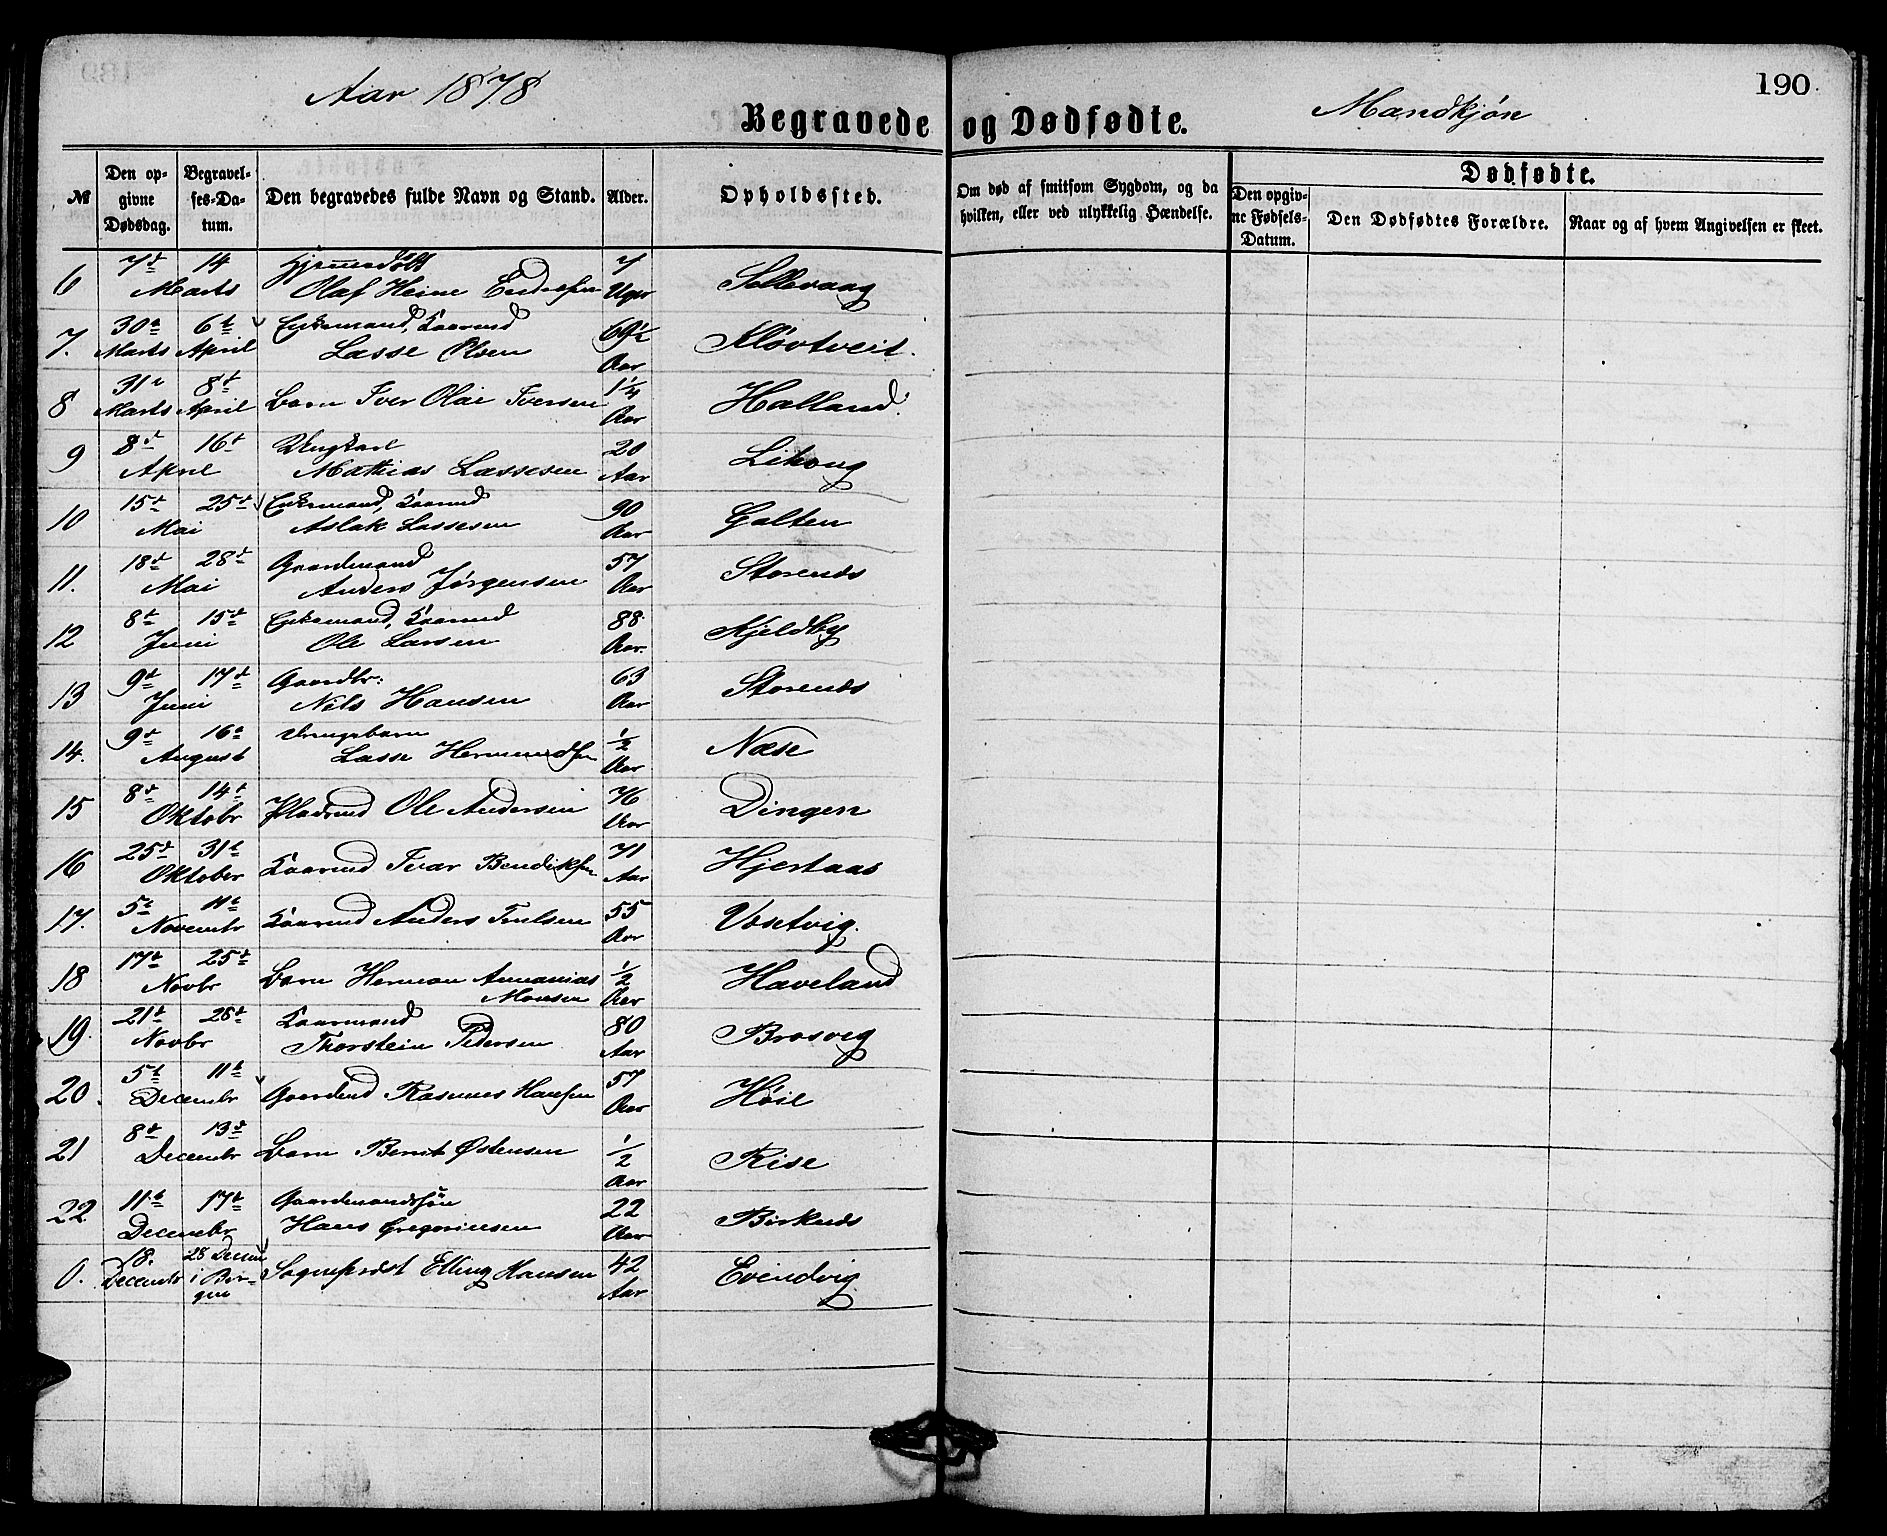 190
Aar 1878
Mandkjøn
Begravede og Dødfødte.
Dødfødte.
№ Den opgivne Dødsdag. Begravelses-Datum. Den begravedes fulde Navn og Stand. Alder. Opholdssted. Om død af smitsom Sygdom, og da hvilken, eller ved ulykkelig Hændelse. Den opgivne Fødsels-Datum. Den Dødfødtes Forældre. Naar og af hvem Angivelsen er skeet.
6 7d 14 Marts Hjemmedøbt Olaf Heine Endresen 7 Uger Sellevaag
7. 30te Marts 6te April Enkemand, Kaarmd Lasse Olsen 69½ Aar Kløvtveit.
8 31te Marts 8de April Barn Iver Olai Iversen 1¼ Aar Halland.
9 8d 16d April Ungkarl Mathias Lassesen 20 Aar
10 15d 25d Mai Enkemand, Kaarmd Aslak Lassesen 90 Aar Galten
11. 18d 28d Mai Gaardmand Anders Jørgensen 57 Aar Storenæs
12 8d 15d Juni Enkemand, Kaarmd Ole Larsen 88 Aar. Kjeldby
13 9d 17d Juni Gaardbr: Nils Hansen 63 Aar Storenæs
14. 9d 16d August Drengebarn Lasse Hermundsen ½ Aar Næse
15 8d 14d Oktobr Pladsmd Ole Andersen 76 Aar Dingen
16 25d 31te Oktober Kaarmd Ivar Bendiksen 71 Aar Hjertaas
17. 5te 11te Novembr Kaarmd Anders 55 Aar
18 17de 25d Novbr Barn Herman Annanias Monsen ½ Aar Haveland
19. 21d 28d Novbr Kaarmand Thorstein Pedersen 80 Aar Brosvig
20. 5te 11te Decembr Gaardmd Rasmus Hansen 57 Aar Høie
21 8d 13d Decembr Barn Berent Østensen ½ Aar Rise
22 11te 17d Decembr Gaardmandssøn Hans Gregoriusen 22 Aar Birknæs
0. 18. Decembr 28 Decem i Bergen Sognepræst Elling Hansen 42 Aar Evindvig